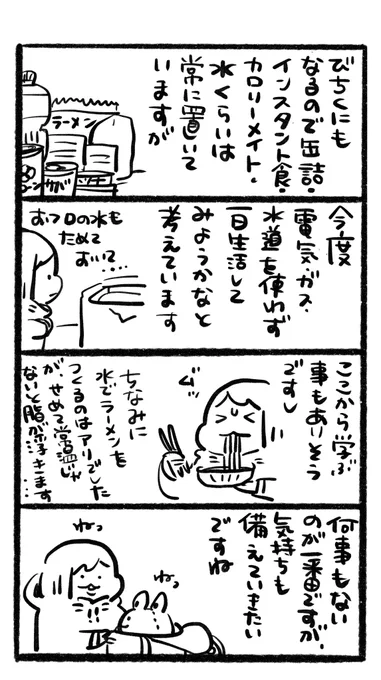 びちくにも
なるので缶詰・
インスタント食・
カロリーメイト・
水くらいは
常に置いて
いますが
ラーメン
サバ
今度
電気・ガス・
水道を使わず
一日生活して
みようかなと
考えています
おフロの水も
ためて
おいて
……
ここから学ぶ
事もありそう
ですし
ムグッ
ちなみに
水でラーメンを
つくるのはアリでした
が、せめて常温じゃ
ないと脂が浮きます…
何事もない
のが一番ですが、
気持ちも
備えていきたい
ですね
ねっ
ねっ